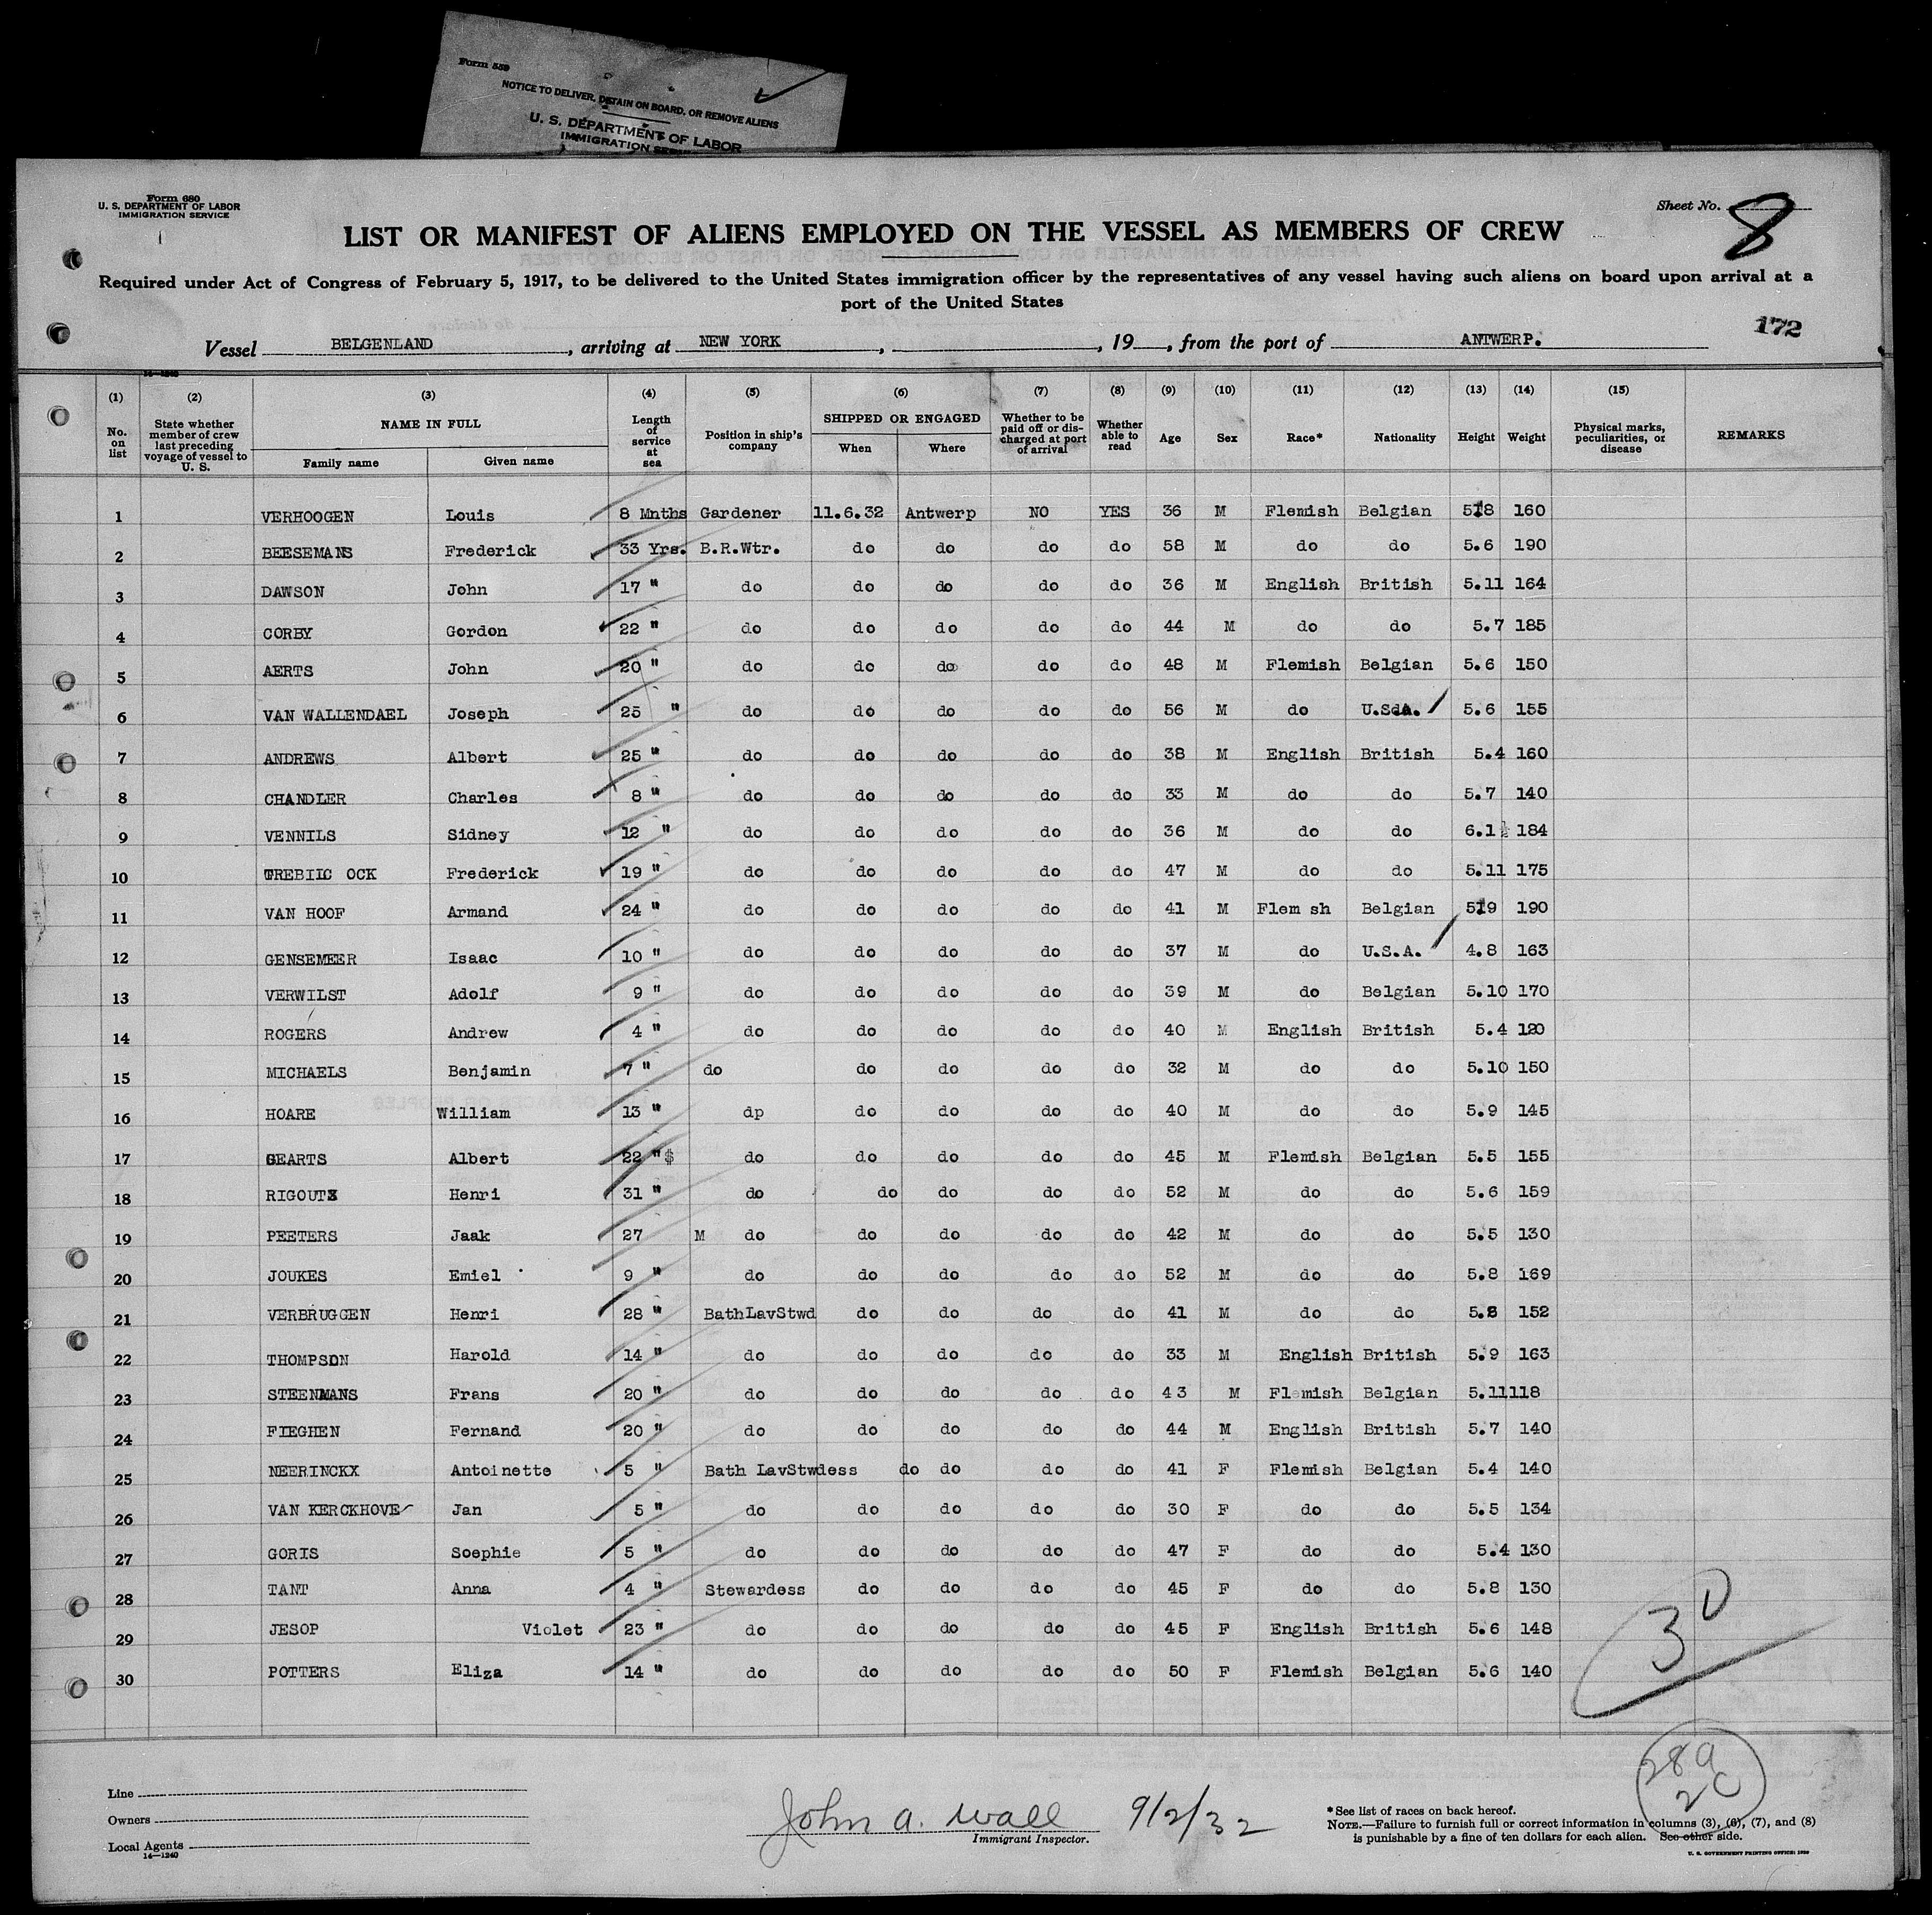 Form 559
NOTICE TO DELIVER, DETAIN ON BOARD, OR REMOVE ALIENS
U. S. DEPARTMENT OF LABOR
IMMIGRATION
Form 680
U. S. DEPARTMENT OF LABOR
IMMIGRATION SERVICE
Sheet No. 8
LIST OR MANIFEST OF ALIENS EMPLOYED ON THE VESSEL AS MEMBERS OF CREW
Required under Act of Congress of February 5, 1917, to be delivered to the United States immigration officer by the representatives of any vessel having such aliens on board upon arrival at a
port of the United States
172
Vessel BELGENLAND, arriving at NEW YORK, , 19 , from the port of ANTWERP.
14-1240
(1) (2) (3) (4) (5) (6) (7) (8) (9) (10) (11) (12) (13) (14) (15)
No. on list State whether member of crew last preceding voyage of vessel to U. S. NAME IN FULL Family name Given name Length of service at sea Position in ship's company SHIPPED OR ENGAGED When Where Whether to be paid off or discharged at port of arrival Whether able to read Age Sex Race* Nationality Height Weight Physical marks, peculiarities, or disease REMARKS
1 VERHOOGEN Louis 8 Mnths Gardener 11.6.32 Antwerp NO YES 36 M Flemish Belgian 5.8 160
2 BEESEMANS Frederick 33 Yrs. B.R.Wtr. do do do do 58 M do do 5.6 190
3 DAWSON John 17 " do do do do do 36 M English British 5.11 164
4 CORBY Gordon 22 " do do do do do 44 M do do 5.7 185
5 AERTS John 20 " do do do do do 48 M Flemish Belgian 5.6 150
6 VAN WALLENDAEL Joseph 25 " do do do do do 56 M do U.S.A. 5.6 155
7 ANDREWS Albert 25 " do do do do do 38 M English British 5.4 160
8 CHANDLER Charles 8 " do do do do do 33 M do do 5.7 140
9 VENNILS Sidney 12 " do do do do do 36 M do do 6.1 184
10 TREBIIC OCK Frederick 19 " do do do do do 47 M do do 5.11 175
11 VAN HOOF Armand 24 " do do do do do 41 M Flem sh Belgian 5.9 190
12 GENSEMEER Isaac 10 " do do do do do 37 M do U.S.A. 4.8 163
13 VERWILST Adolf 9 " do do do do do 39 M do Belgian 5.10 170
14 ROGERS Andrew 4 " do do do do do 40 M English British 5.4 120
15 MICHAELS Benjamin 7 " do do do do do 32 M do do 5.10 150
16 HOARE William 13 " dp do do do do 40 M do do 5.9 145
17 GEARTS Albert 22 "$ do do do do do 45 M Flemish Belgian 5.5 155
18 RIGOUTS Henri 31 " do do do do do 52 M do do 5.6 159
19 PEETERS Jaak 27 M do do do do do 42 M do do 5.5 130
20 JOUKES Emiel 9 " do do do do do 52 M do do 5.8 169
21 VERBRUGGEN Henri 28 " BathLavStwd do do do do 41 M do do 5.8 152
22 THOMPSON Harold 14 " do do do do do 33 M English British 5.9 163
23 STEENMANS Frans 20 " do do do do do 43 M Flemish Belgian 5.11 118
24 FIEGHEN Fernand 20 " do do do do do 44 M English British 5.7 140
25 NEERINCKX Antoinette 5 " Bath LavStwdess do do do do 41 F Flemish Belgian 5.4 140
26 VAN KERCKHOVE Jan 5 " do do do do do 30 F do do 5.5 134
27 GORIS Soephie 5 " do do do do do 47 F do do 5.4 130
28 TANT Anna 4 " Stewardess do do do do 45 F do do 5.8 130
29 JESOP Violet 23 " do do do do do 45 F English British 5.6 148
30 POTTERS Eliza 14 " do do do do do 50 F Flemish Belgian 5.6 140
30
28a
2C
Line
Owners
Local Agents
14-1240
John A. Wall 9/2/32
Immigrant Inspector.
*See list of races on back hereof.
NOTE.—Failure to furnish full or correct information in columns (3), (6), (7), and (8)
is punishable by a fine of ten dollars for each alien. See other side.
U. S. GOVERNMENT PRINTING OFFICE: 1930